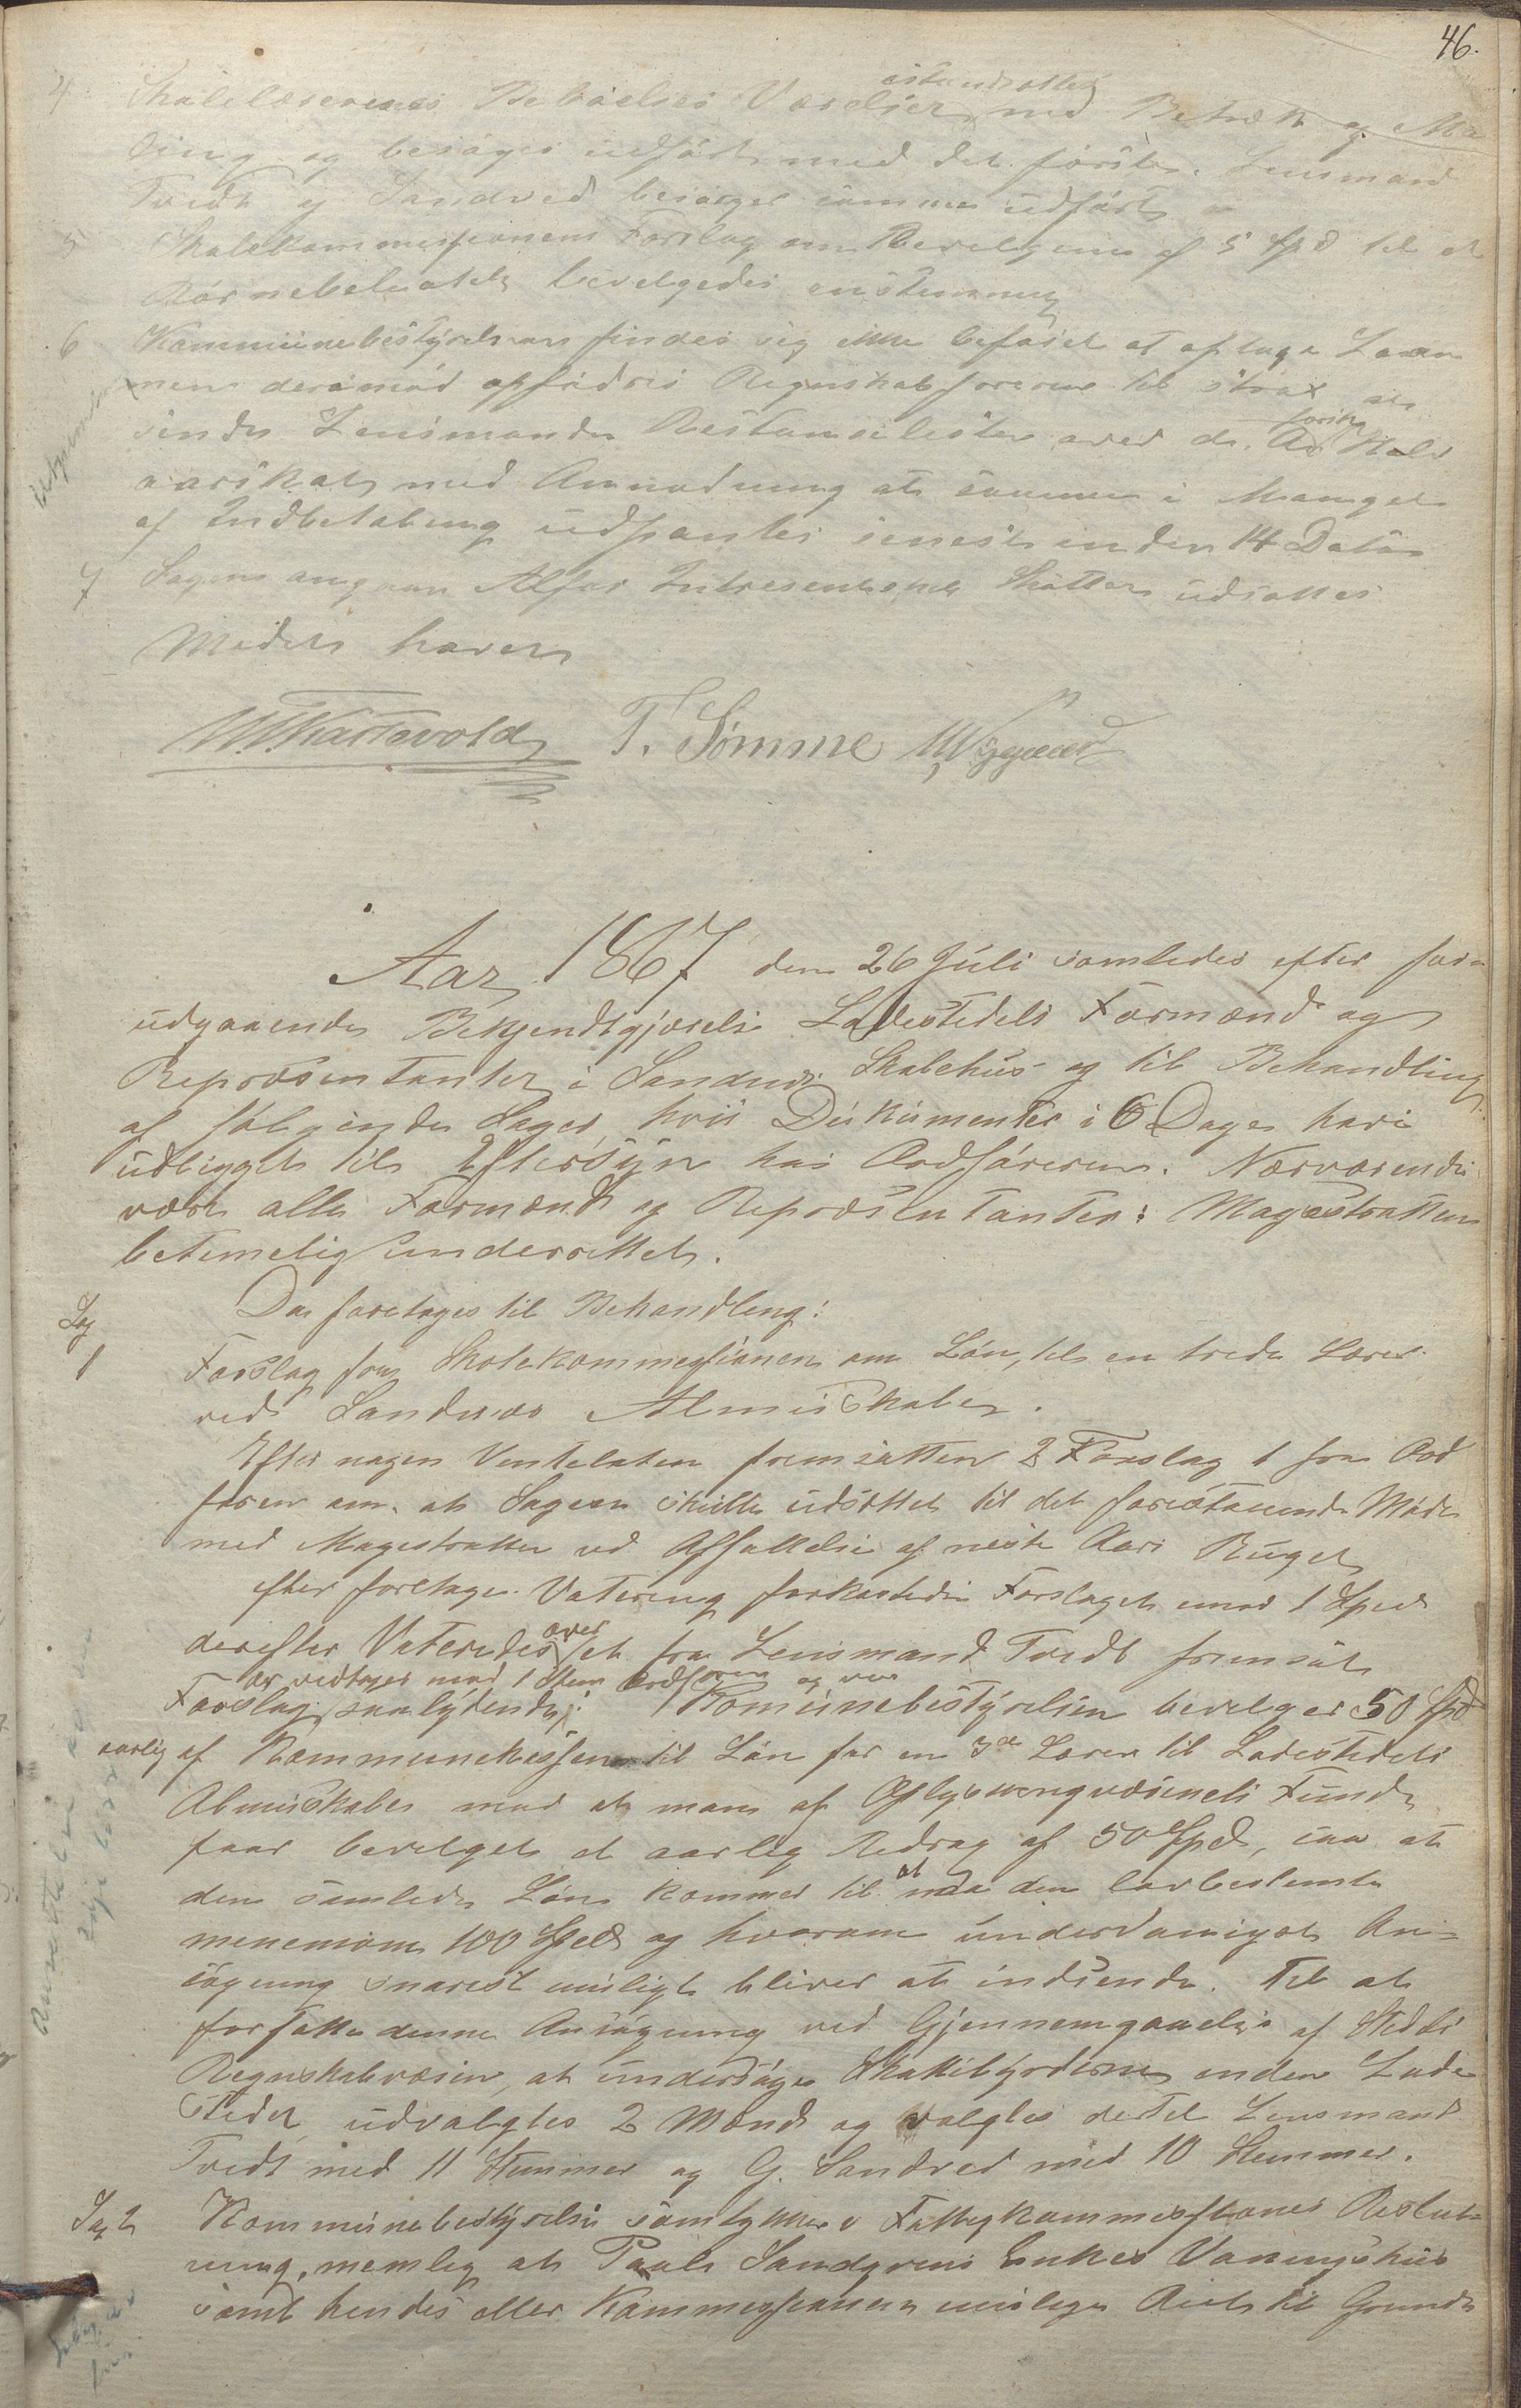 46.
4 Skolelærerenes Beboelses Værelser istandsættes med Betræk og Ma
ling og besørges udført med det første. Lensmand
Tvedt og Sandved besørger samme udført
5 Skolekommissionens Forslag om Bevelgning af 5 Spd til et
Børnebibliothek bevelgedes enstemmig
6 Kommunebestyrelsen findes sig ikke beføiet at optage Laan
men derimod opfødres Regnskabsføreren til strax at
sende Lensmanden Restanselister over de første Halv
aarskat med Anmodning at samme i Mangel
af Indbetaling udpantes senest inden 14 Dato
7 Sagen angaaen Alfar Intresentskab Skatter udsættes
Mødet hævet
T. Sømme
Aar 1867 den 26 Juli samledes efter for
udgaaende Bekjendtgjørelse Ladestedets Formænd og
Repræsentanter i Sandnes Skolehus og til Behandling
af følgende Sager, hvis Dukumenter i 6 Dage have
udligget til Eftersyn hos Ordføreren. Nærværende
vare alle Formænd og Repræsentanter: Magestratten
betimelig underrettet.
Da foretoges til Behandling:
Sag
1 Forslag fra Skolekommissionen om Løn til en tredie Lærer
ved Sandnes Almueskole.
Efter nogen Ventelation fremsatten 2 Forslag 1 fra Ord
føren om at Sagen skulle udsættet til det forestaaende Møde
med Magestratten ved Affattelse af neste Aars Buget
efter foretagen Votering forkastedes Forslaget mod 1 Stem
derefter Voteredes over et fra Lensmand Tvedt fremsat
er vedtaget mod 1 Stem Ordføren og var
Forslag saalydende: Komunebestyrelsen bevelger 50 Spd
aarlig af Kommunekassen til Løn for en 3de Lærer til Ladestedets
Almueskoler mod at man af Oplysningvæsenets Fund
faar bevelget et aarlig Bedrag af 50 Spd, saa at
den samlede Løn kommer til at naa den lovbestemte
menemom 100 Spd og hvorom underdanigst An=
søgning snarest muligt bliver at indsende. Til at
forfatte denne Ansøgning ved Gjennemgaaelse af Stedets
Regnskabvæsen, at undersøge Skattebyrderne inden Lade
Stedet, udvalgtes 2 Mænd og valgtes dertil Lensmand
Tvedt med 11 Stemmer og G. Sandved med 10 Stemmer.
Sag 2 Kommunebestyrelsen samtykker i Fattigkommissionens Beslut=
ning, nemlig at Paul Sandgrens Enkes Vaaningshus
samt hendes eller Kommissionens mulige Ret til Grunden